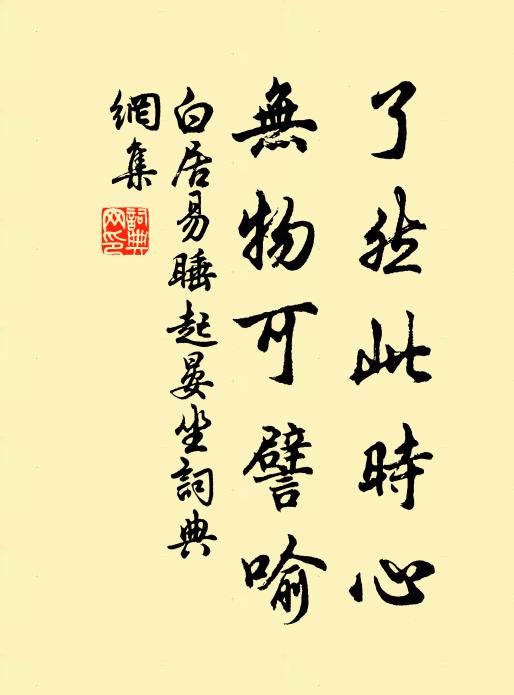 了然此時心
無物可譬喻
白居易睡起晏坐詞典
網集
詞典
网印